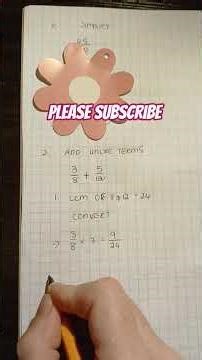 PLEASE SUBSCRIBE
2. ADD UNLIKE TERMS
3/8 + 5/12
1. LCM OF 8 & 12 = 24
CONVERT
3/8 × ? = 9/24